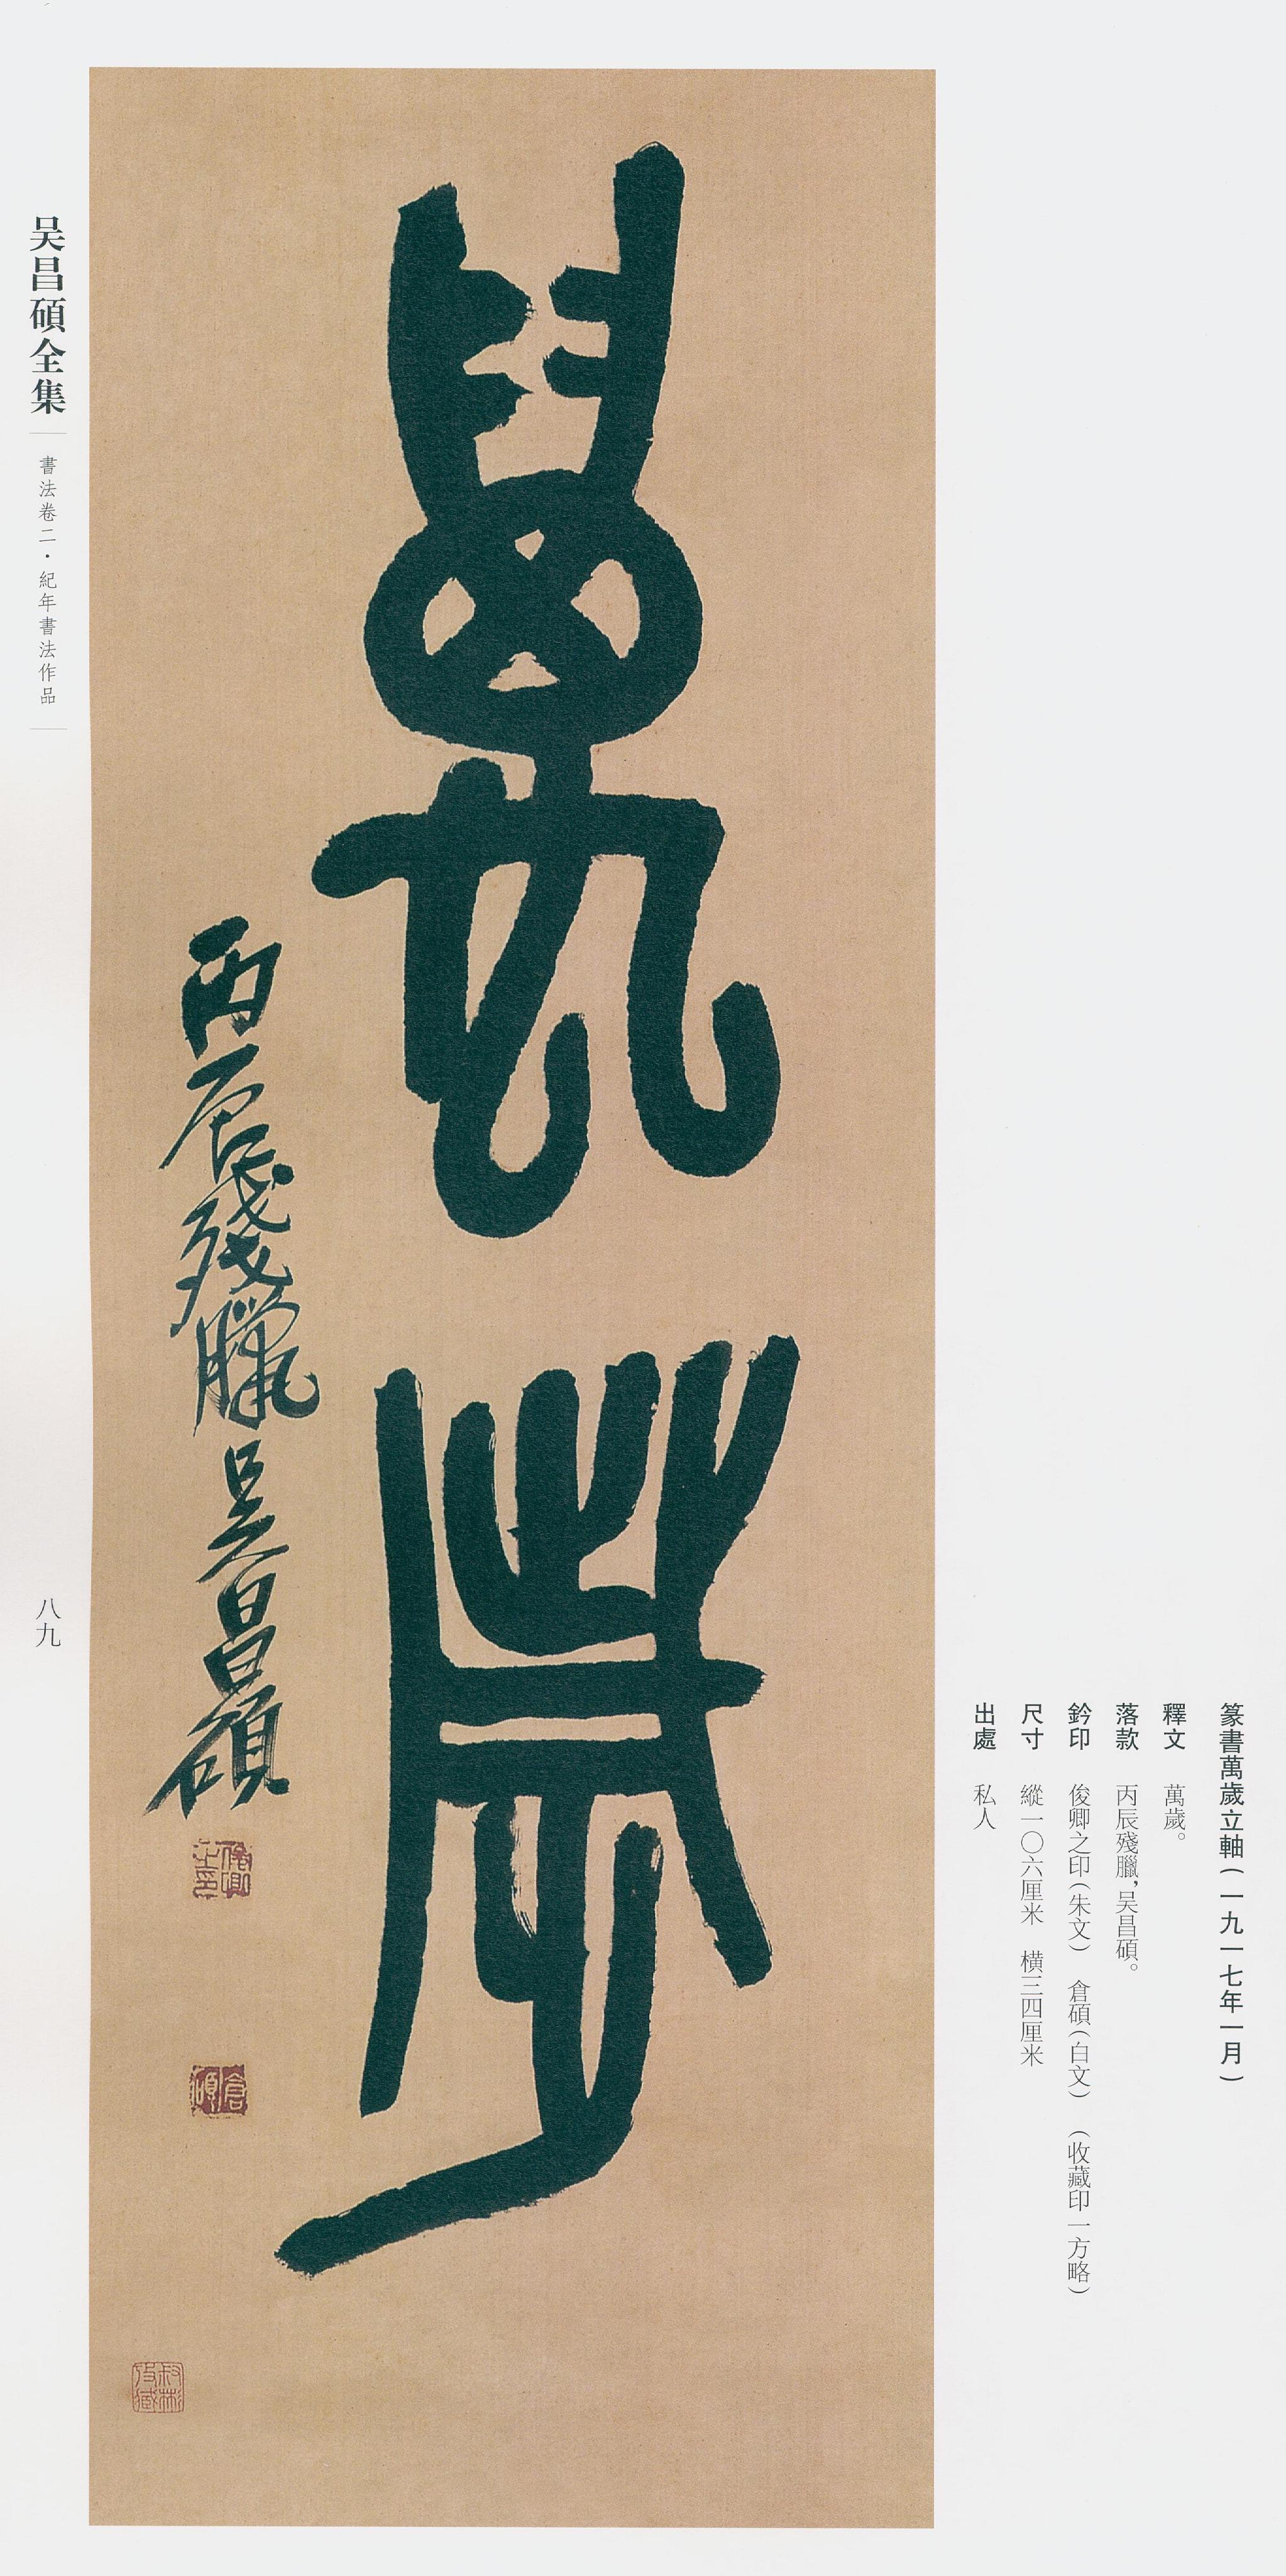 篆書萬歲立軸(一九一七年一月)
釋文 萬歲。
落款 丙辰殘臘,吴昌碩。
鈐印 俊卿之印(朱文) 倉碩(白文) (收藏印一方略)
尺寸 縱一〇六厘米 横三四厘米
出處 私人
萬歲
丙辰殘臘吳昌碩
俊卿之印
倉碩
吴昌碩全集
書法卷二·紀年書法作品
八九